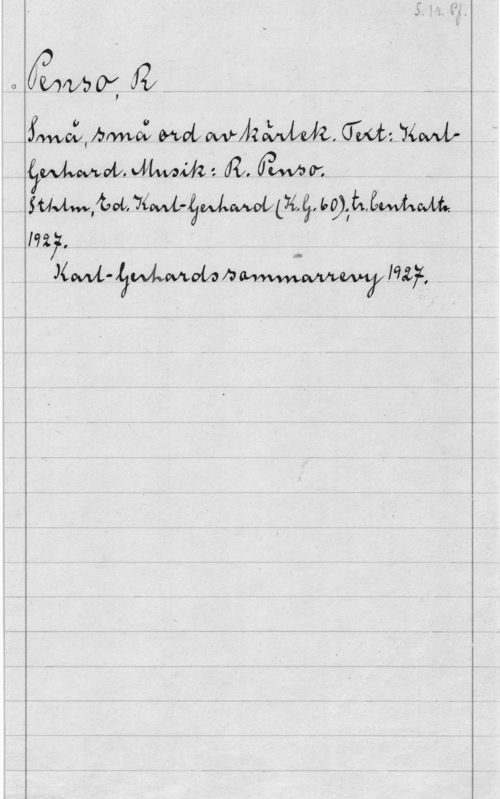 S. 1 r. Pf.
Penso, R
Små, små ord av kärlek. Text: Karl-
Gerhard. Musik: R. Penso.
Sthlm, Ed. Karl-Gerhard (K.G. 60), tr. Centraltr.
1927.
Karl-Gerhards sommarrevy 1927.